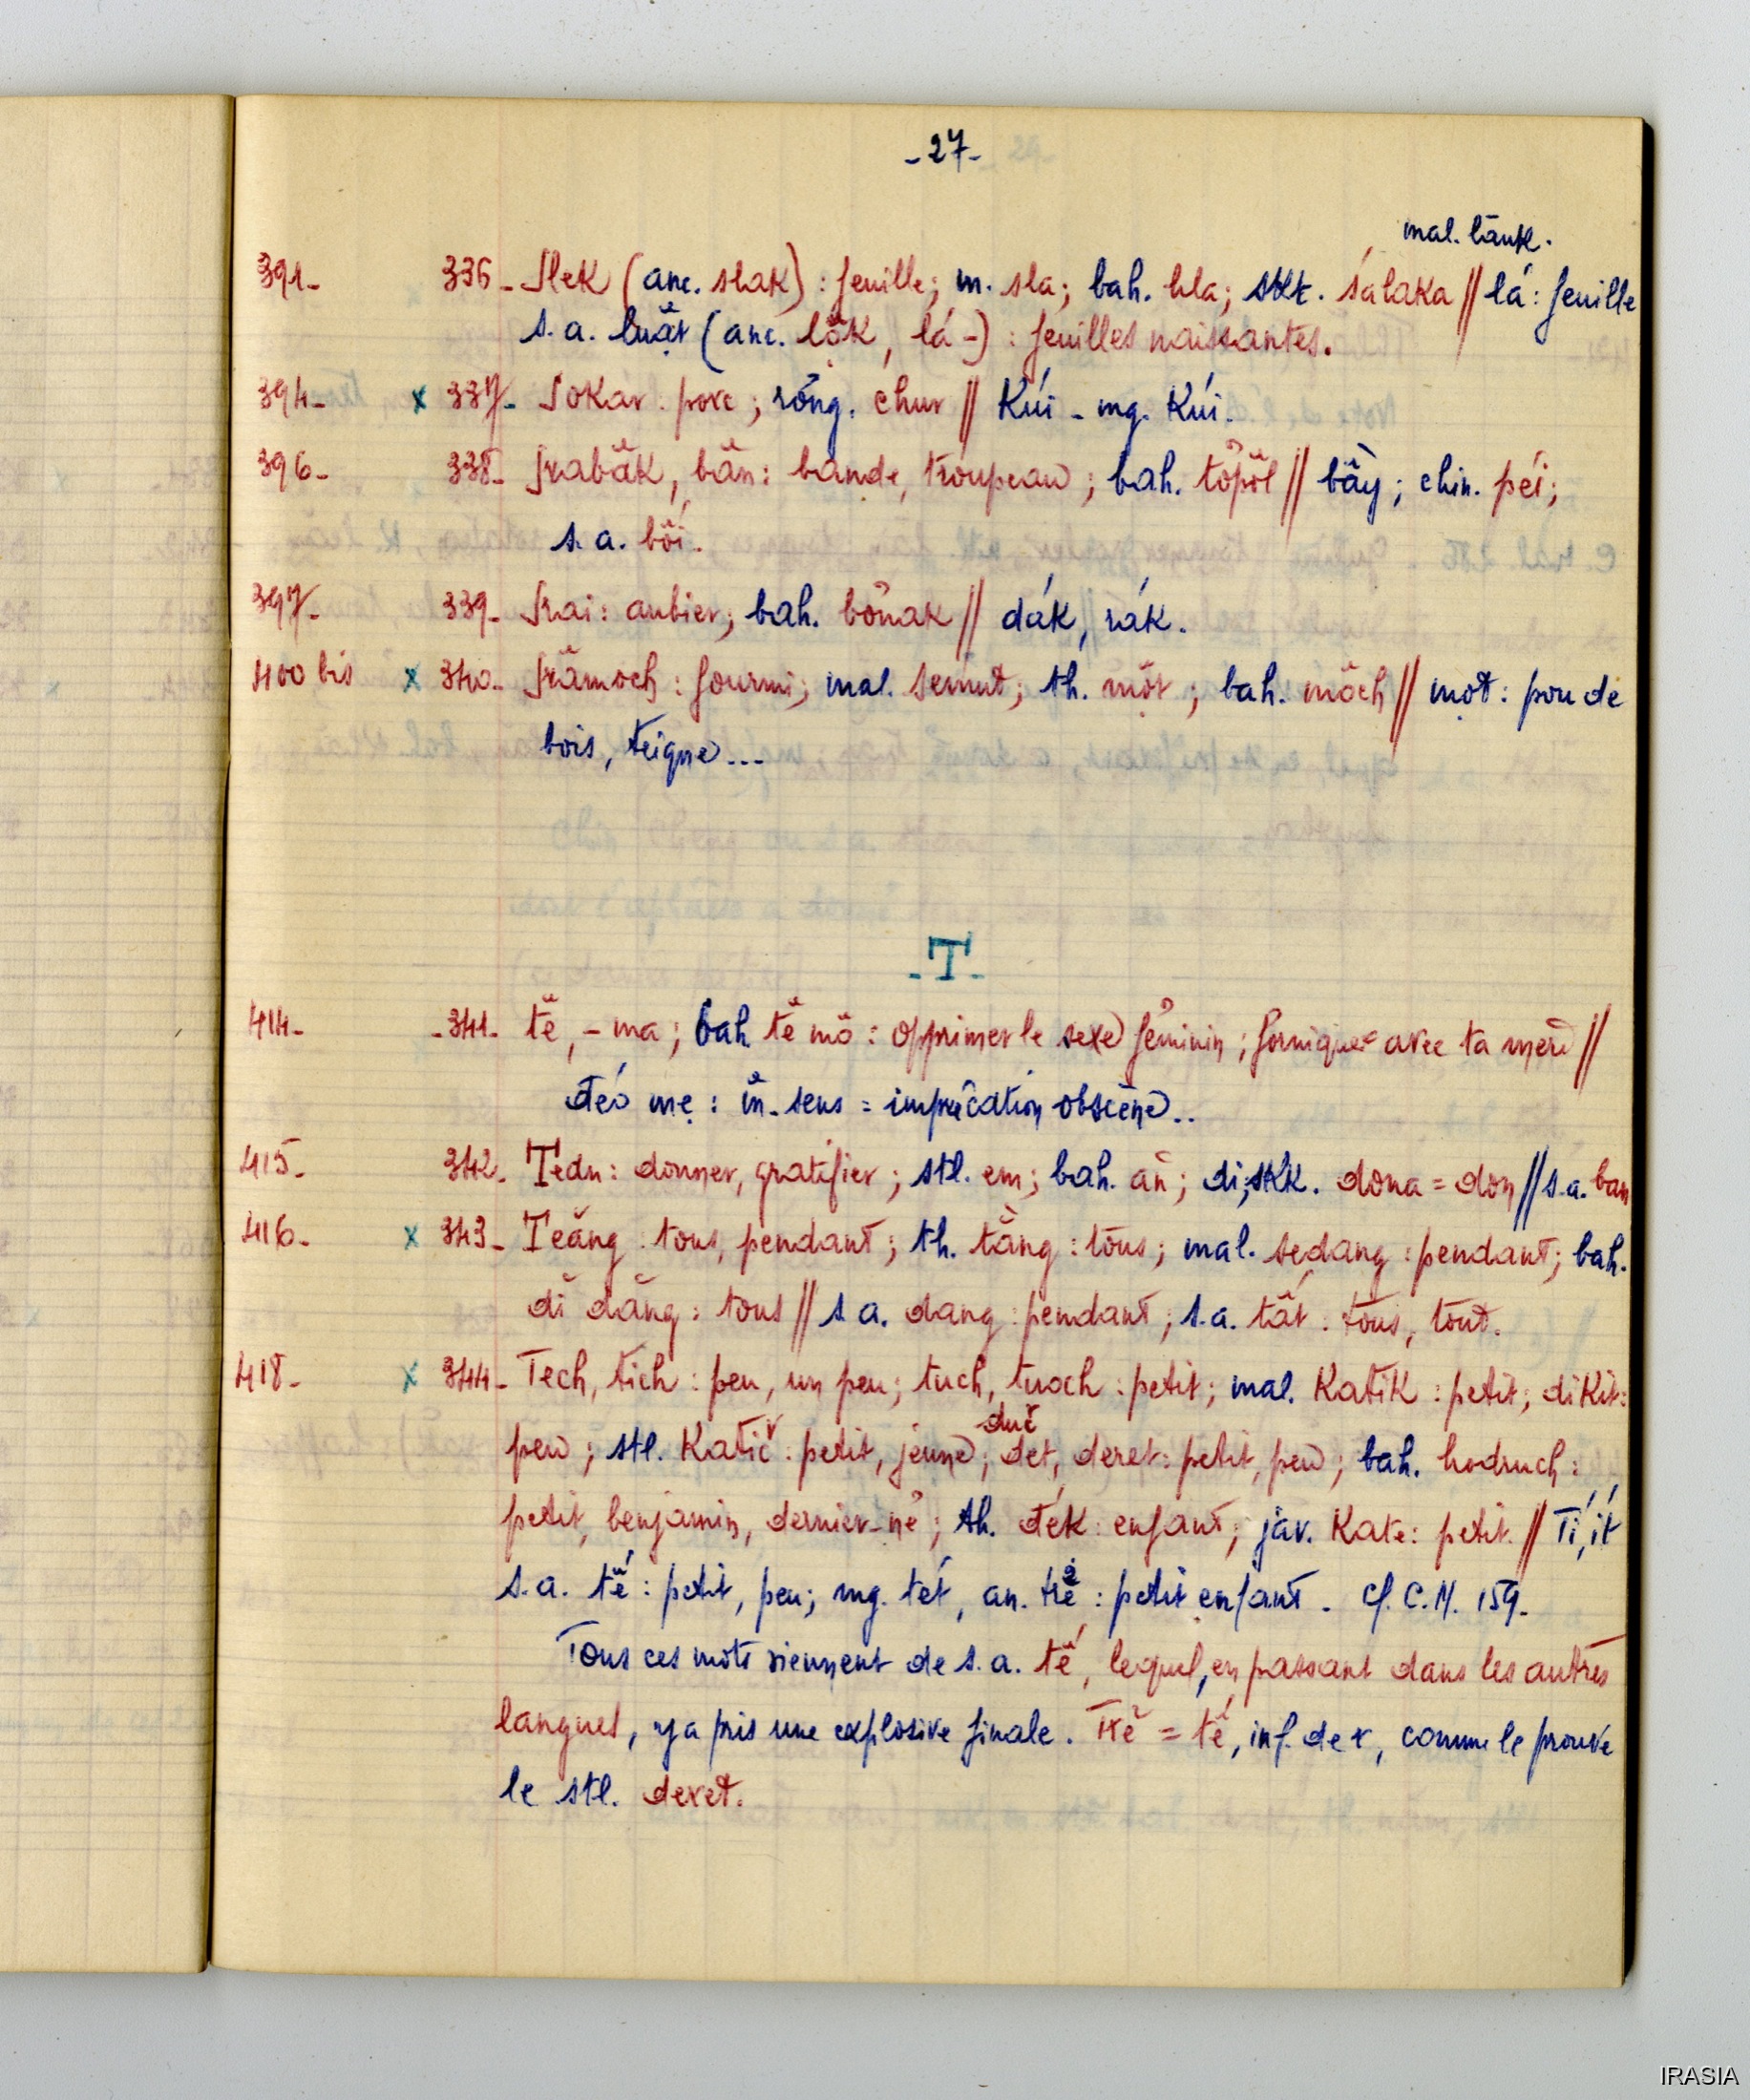 -27-
mal. lauk.
391- 336- Slek (anc. slak) : feuille; m. sla; bah. hla; skt. śalaka // lá : feuille
s. a. (anc. lá -) : feuilles naissantes.
394- x 337- Sokar : porc; röng. chur // Kúi - mg. Kúi.
396- 338- Srabăk, băn : bande, troupeau; bah. töpöl // bầy; chin. péi;
s. a. bối.
397- 339- Srai : aubier; bah. bönak // dák, rák.
400 bis x 340- Srămoch : fourmi; mal. semut; th. ; bah. möch // mọt : pou de
bois, teigne...
-T-
414- -341- tĕ, - ma; bah tĕ mö : opprimer le sexe féminin; forniquer avec ta mère //
đéo mẹ : m̂. sens = imprécation obscène..
415- 342- Tedn : donner, gratifier; stl. em; bah. ăn; di; skt. dona = don // s.a. ban
416- x 343- Teăng : tous, pendant; th. tăng : tous; mal. sedang : pendant; bah.
di dăng : tous // s. a. dang : pendant; s. a. tất : tous, tout.
418- x 344- Tech, tich : peu, un peu; tuch, tuoch : petit; mal. Katik : petit; dikit :
duč
peu; stl. Katič : petit, jeune; det, deret : petit, peu; bah. hodruch :
petit, benjamin, dernier-né; th. đek : enfant; jav. Kate : petit. // Tí, ít
s. a. tế : petit, peu; mg. tét, an. trẻ : petit enfant. Cf. C.M. 159.
Tous ces mots viennent de s. a. tế, lequel, en passant dans les autres
langues, y a pris une explosive finale. Trẻ = tế, inf. de r, comme le prouve
le stl. deret.
IRASIA